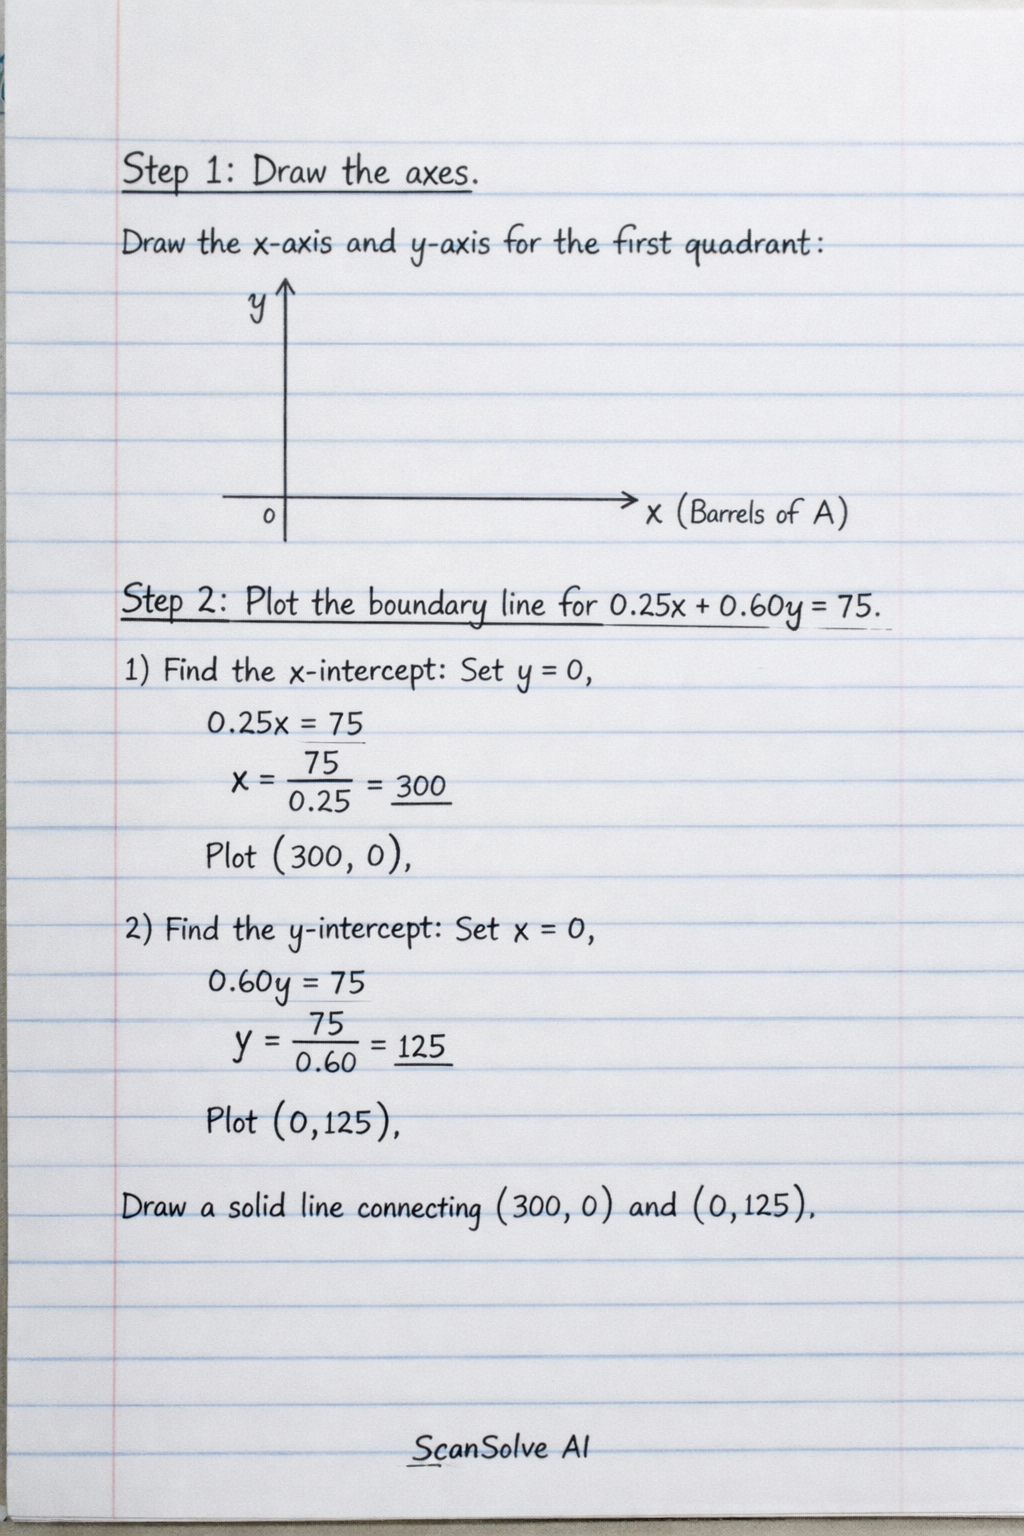 Step 1: Draw the axes.
Draw the x-axis and y-axis for the first quadrant:
y
0
x (Barrels of A)
Step 2: Plot the boundary line for 0.25x + 0.60y = 75.
1) Find the x-intercept: Set y = 0,
0.25x = 75
x = 75/0.25 = 300
Plot (300, 0),
2) Find the y-intercept: Set x = 0,
0.60y = 75
y = 75/0.60 = 125
Plot (0,125),
Draw a solid line connecting (300, 0) and (0,125).
ScanSolve AI